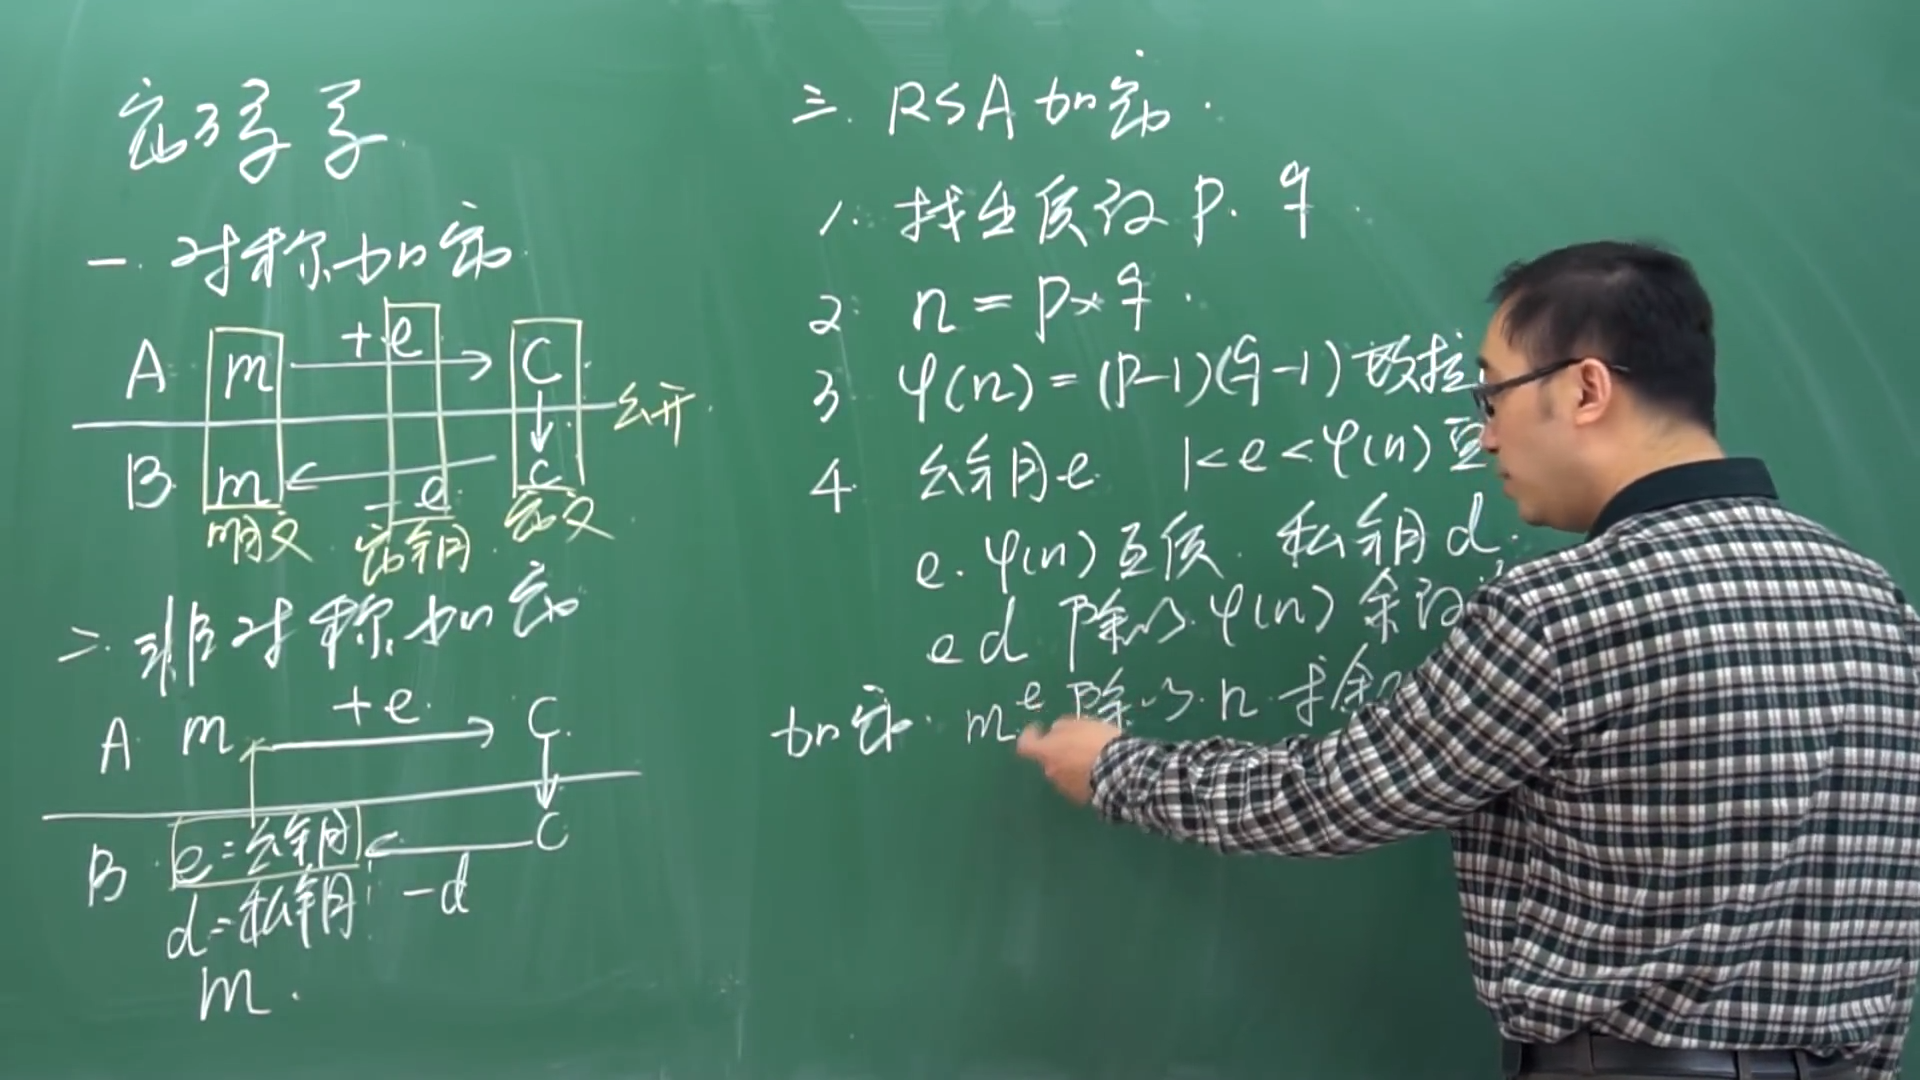 密码学
一. 对称加密
A m +e C
公开
B m -e c
明文 密钥 密文
二. 非对称加密
A m +e C
B e=公钥 C
d=私钥 -d
m
三. RSA加密
1. 找出质数 p. q
2. n=p×q
3 φ(n)=(p-1)(q-1) 欧拉
4 公钥e 1<e<φ(n)
e. φ(n)互质. 私钥d.
ed 除以φ(n) 余数
加密. m^e 除以 n 求余